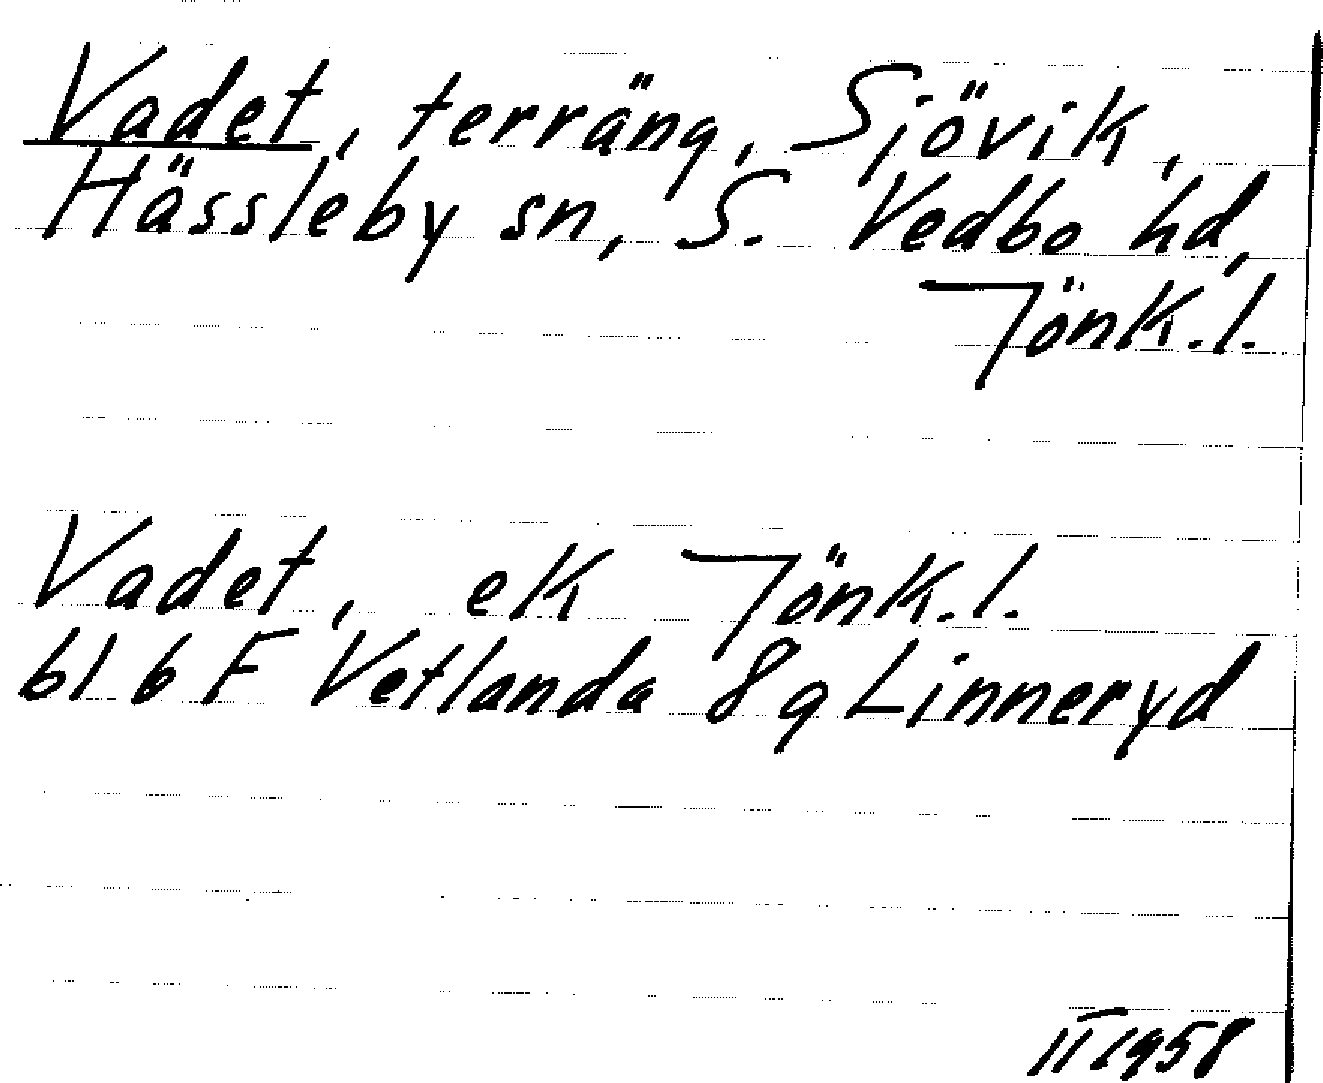 Vadet, terräng, Sjövik,
Hässleby sn, S. Vedbo hd,
Jönk.l.
Vadet, ek Jönk.l.
61 6 F Vetlanda 8g Linneryd
II 1958